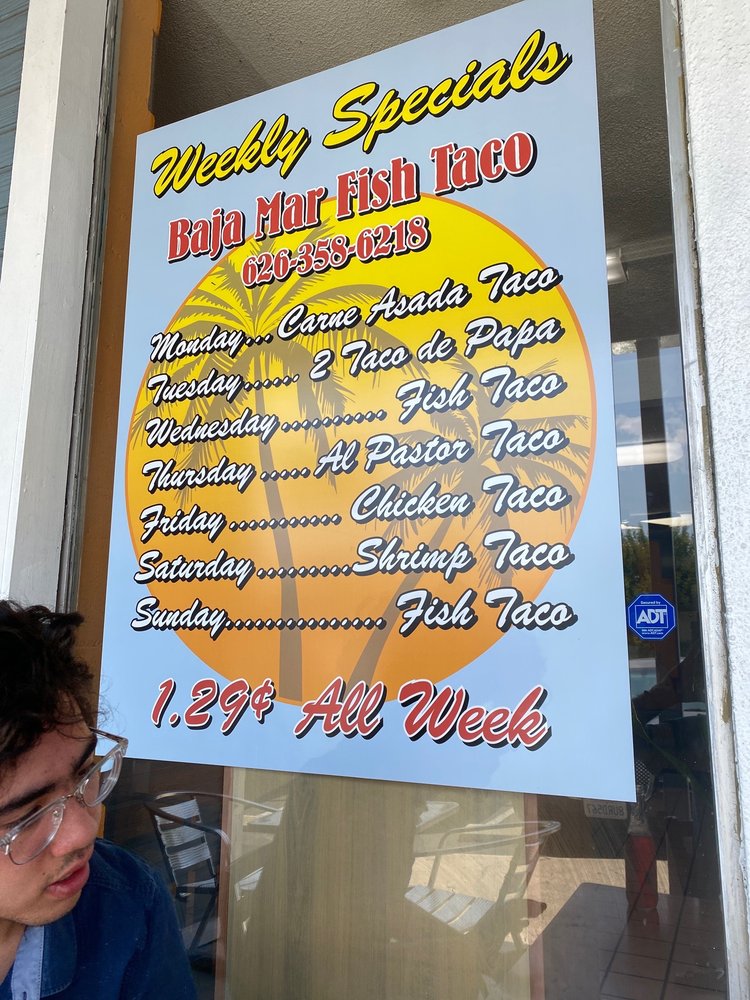 Weekly Specials
Baja Mar Fish Taco
626-358-6218
Monday... Carne Asada Taco
Tuesday...... 2 Taco de Papa
Wednesday .......... Fish Taco
Thursday ..... Al Pastor Taco
Friday ........... Chicken Taco
Saturday .........Shrimp Taco
Sunday............... Fish Taco
1.29¢ All Week
Secured by
ADT